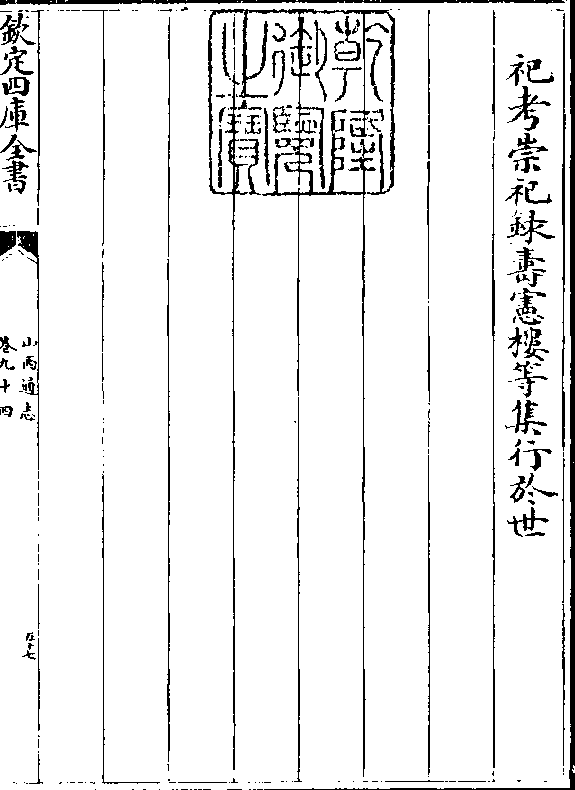 祀考崇祀録壽憲樓等集行於世
乾隆御覽之寶
欽定四庫全書
山西通志
卷九十四
五十七